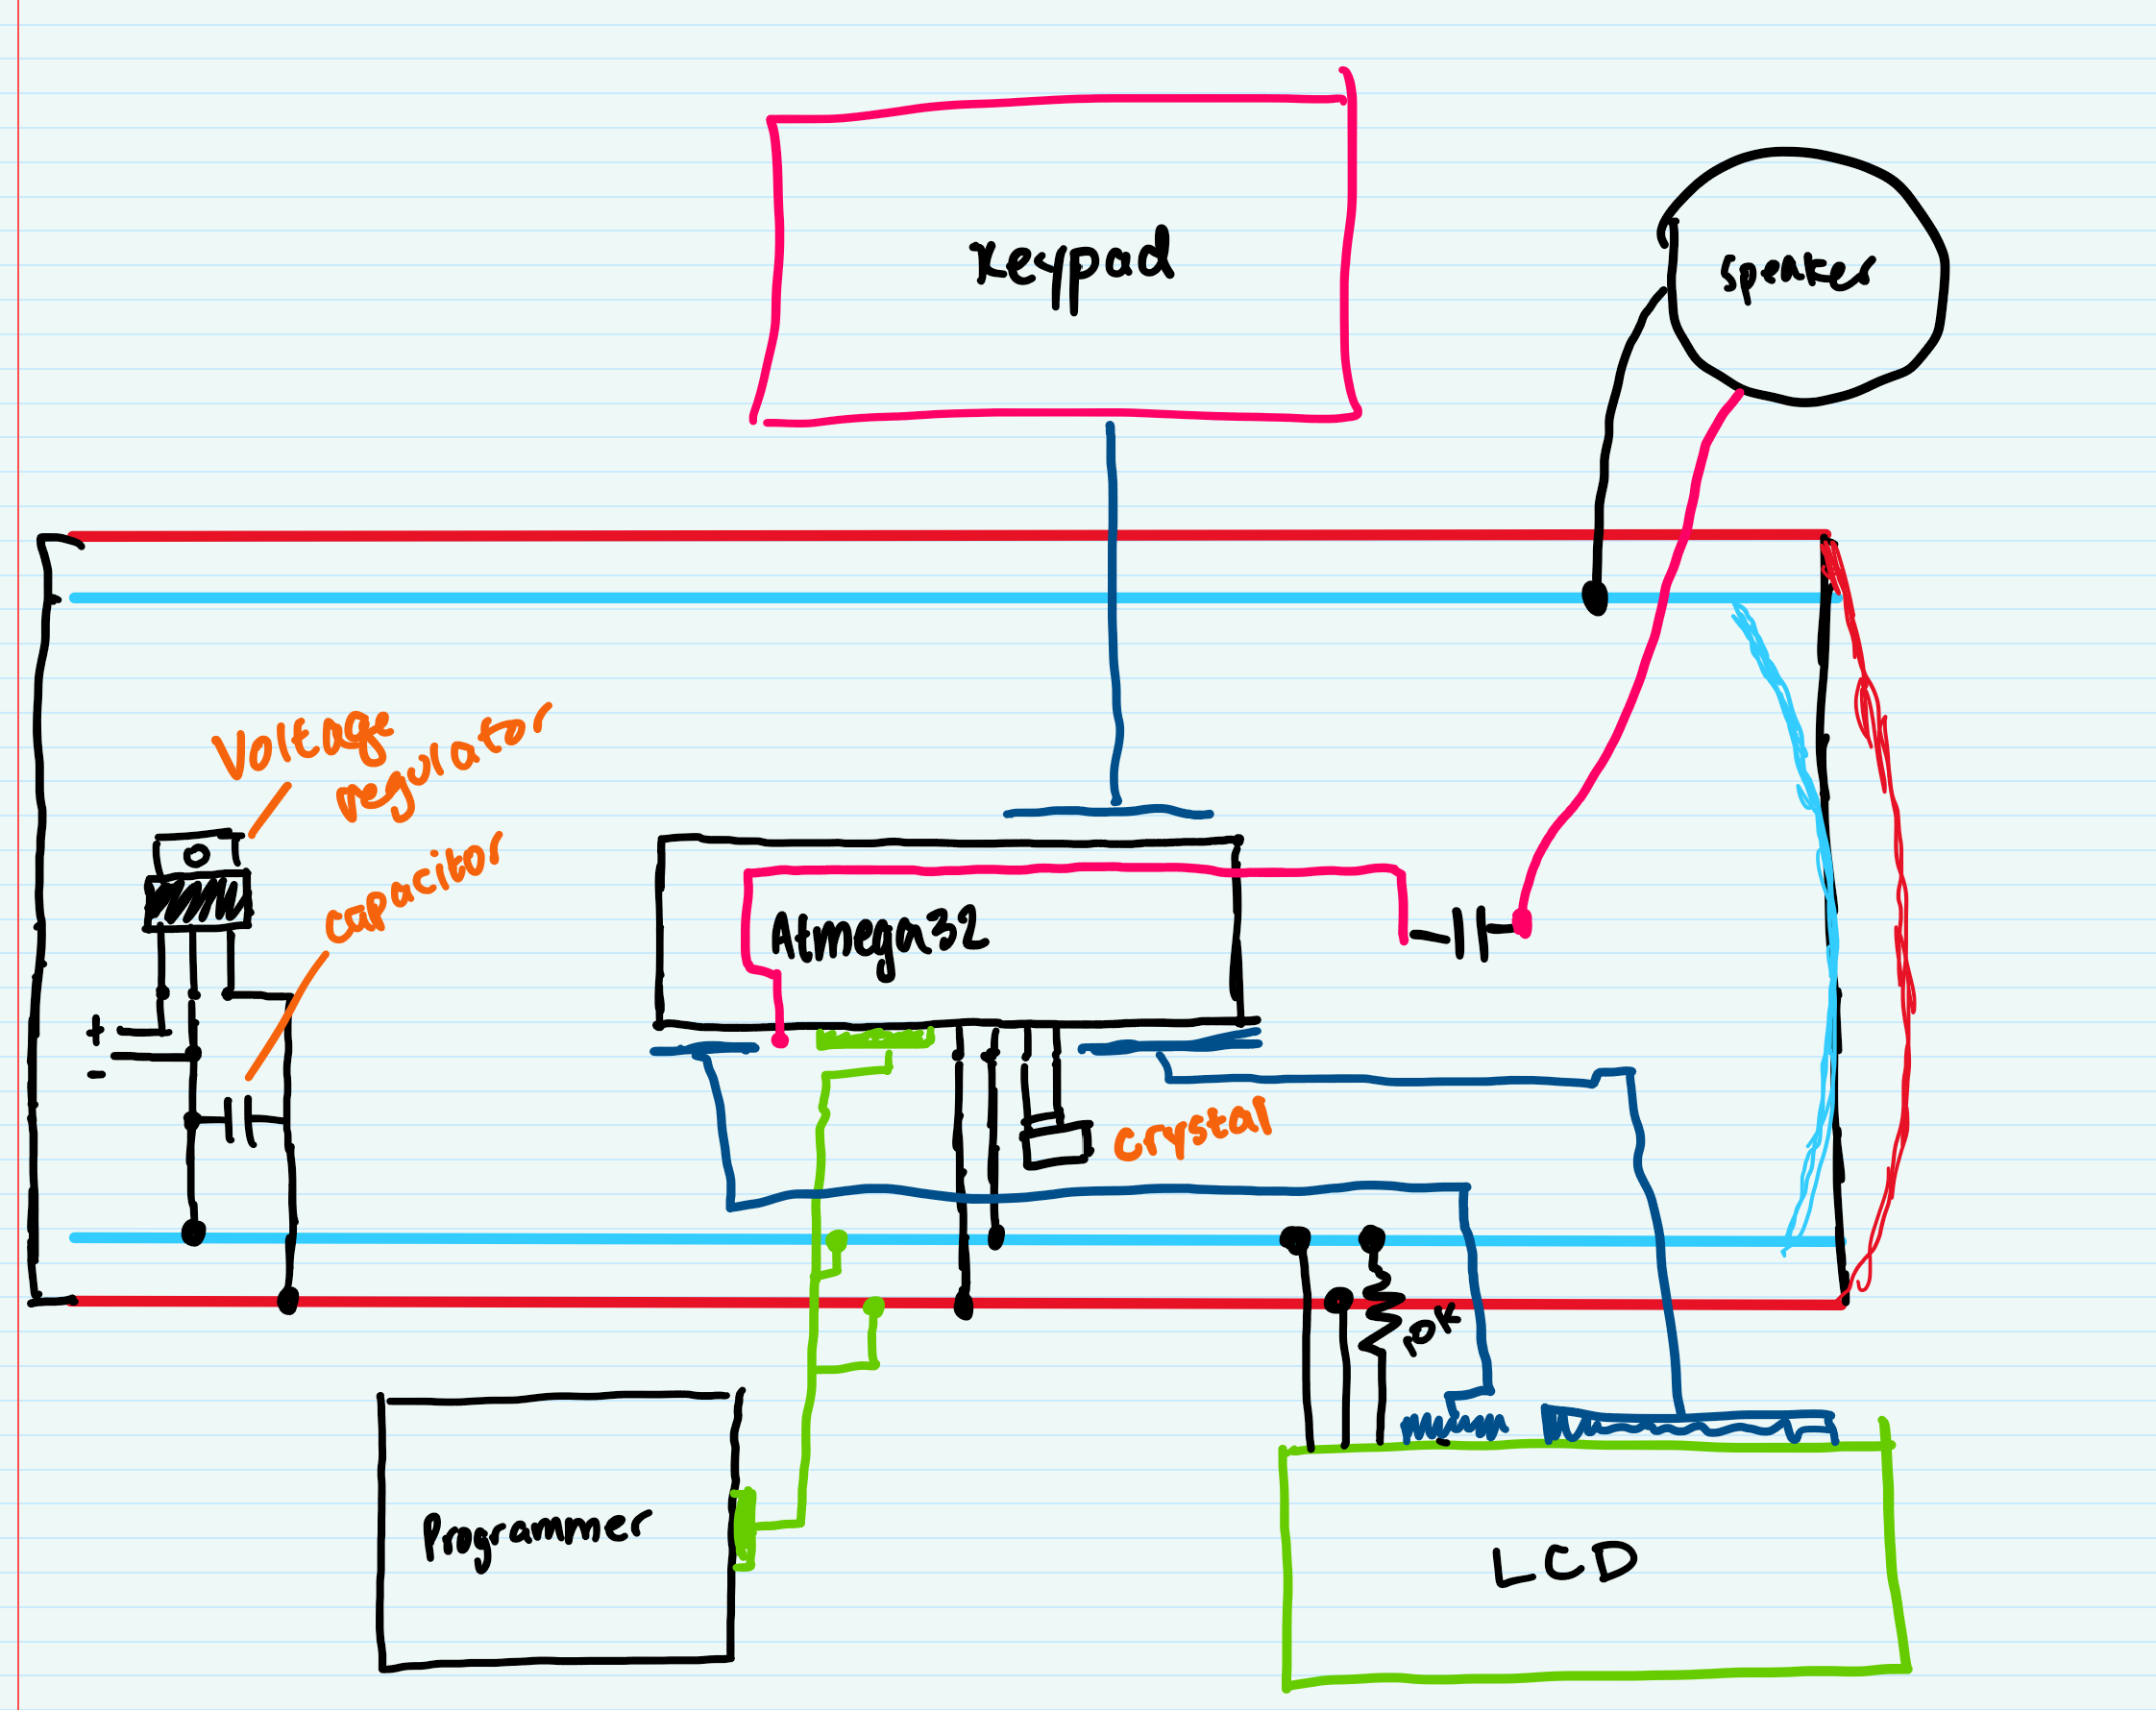 Keypad
speaker
Voltage
regulator
capacitor
Atmega32
+
-
crystal
10K
Programmer
LCD